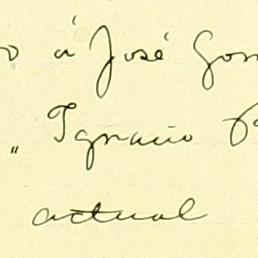 á José
„ Ignacio
actual